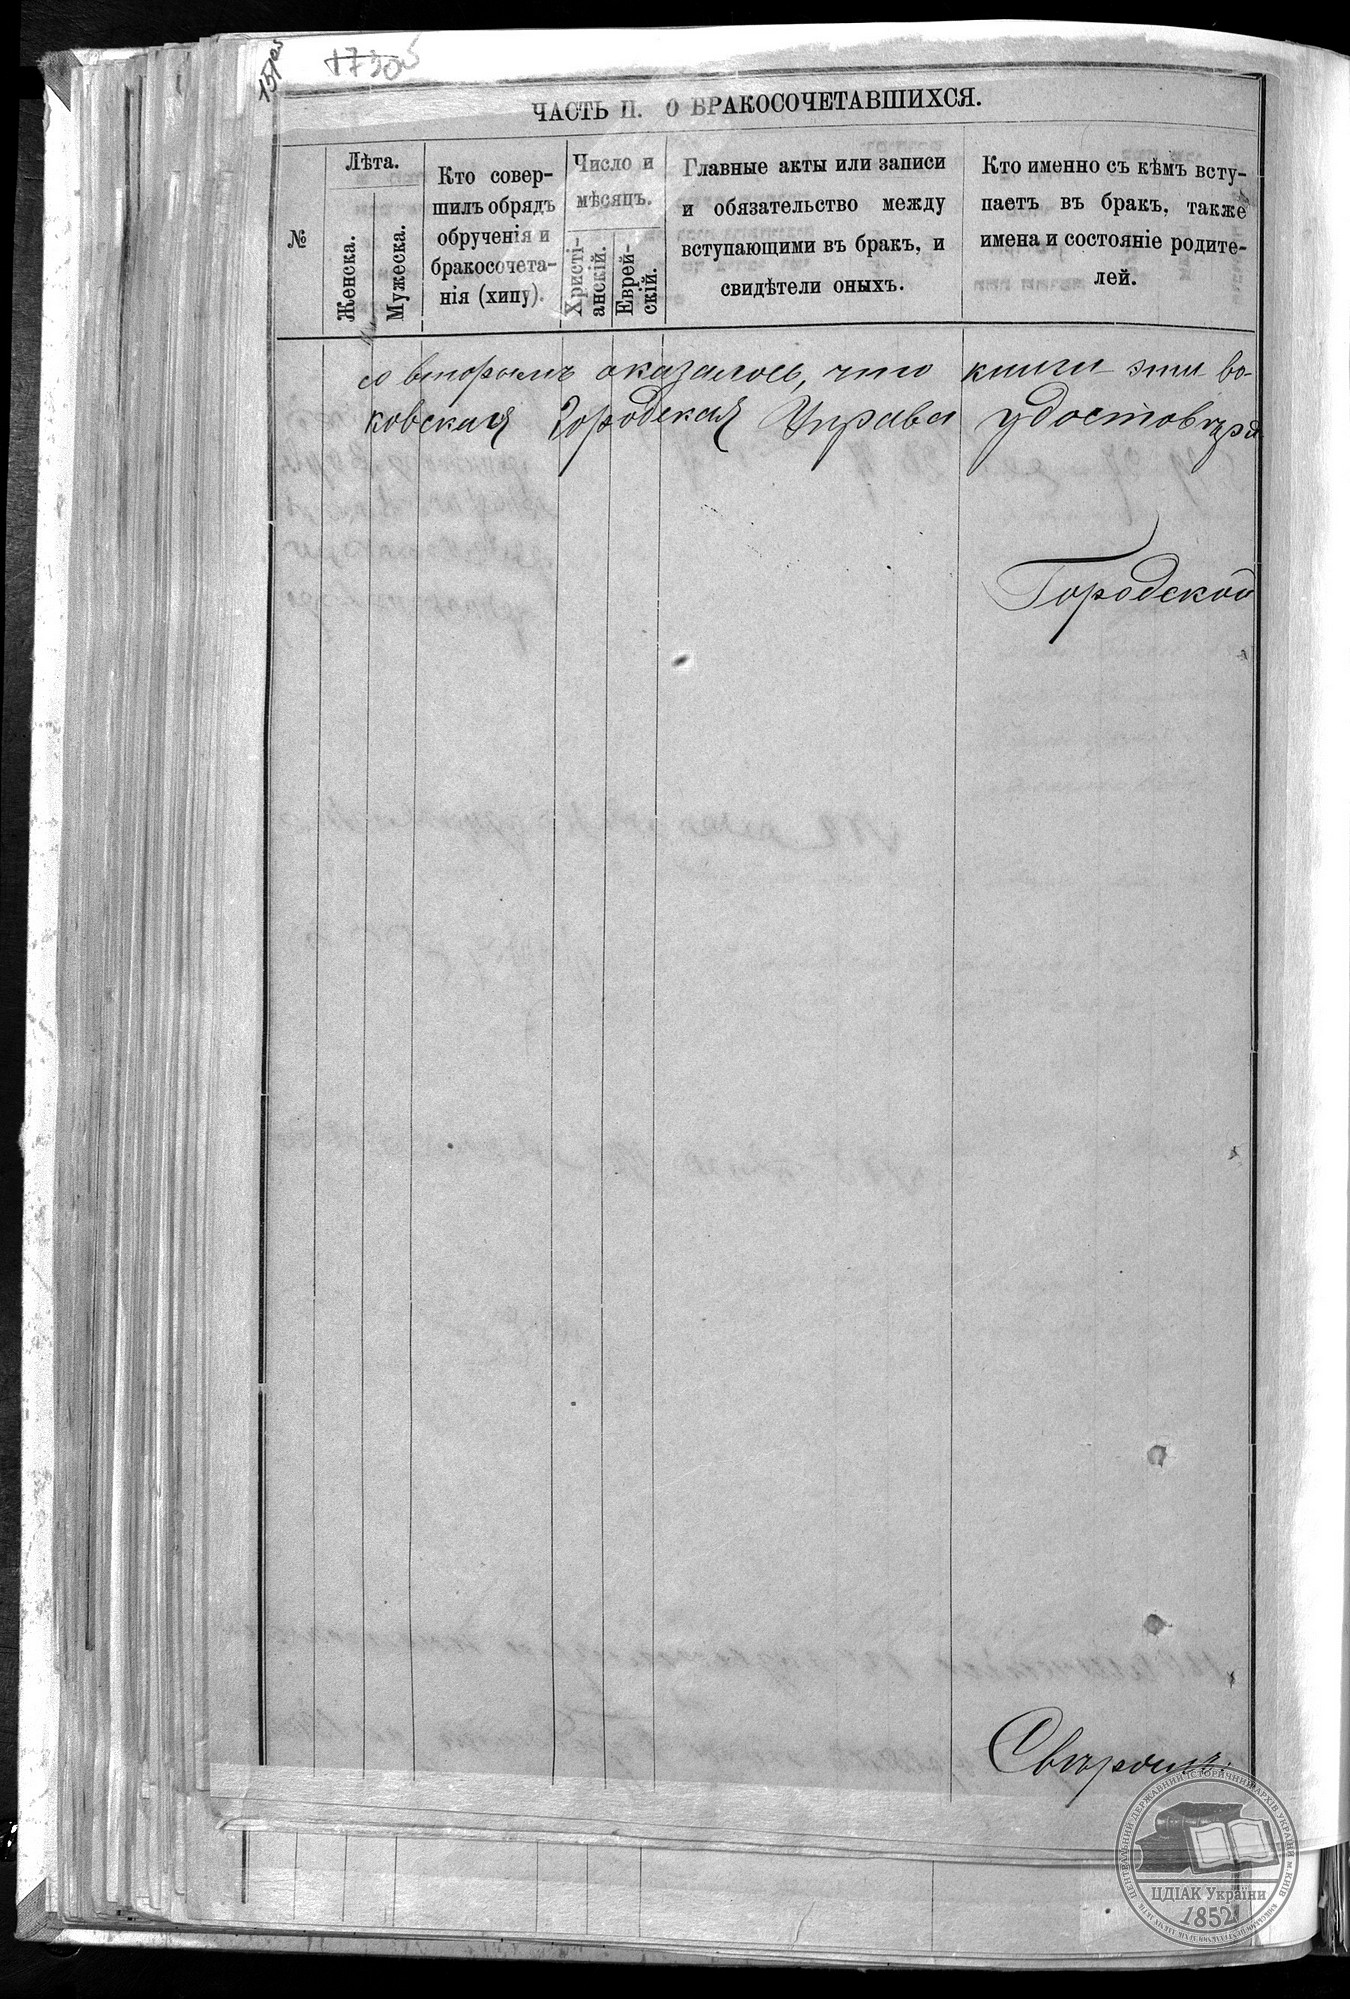 151об
17305
ЧАСТЬ II. О БРАКОСОЧЕТАВШИХСЯ.
№
Лѣта.
Женска.
Мужеска.
Кто совер-
шилъ обрядъ
обрученія и
бракосочета-
нія (хипу).
Число и
мѣсяцъ.
Христі-
анскій.
Еврей-
скій.
Главные акты или записи
и обязательство между
вступающими въ бракъ, и
свидѣтели оныхъ.
Кто именно съ кѣмъ всту-
паетъ въ бракъ, также
имена и состояніе родите-
лей.
со вторымъ оказалось, что книги эти во-
ковская Городская Управа удостовѣря
Городской
Свѣрочилъ:
ЦЕНТРАЛЬНИЙ ДЕРЖАВНИЙ ІСТОРИЧНИЙ АРХІВ УКРАЇНИ м. КИЇВ
ЦДІАК України
1852